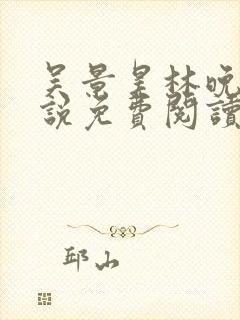 吴景星林晚
說免費閱讀
邱山